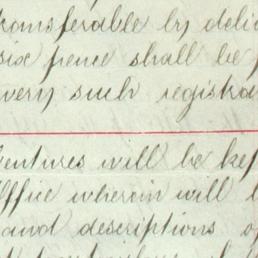 transferable by deli
six pence shall be p
very such registra
entures will be kep
Office wherein will b
and descriptions o